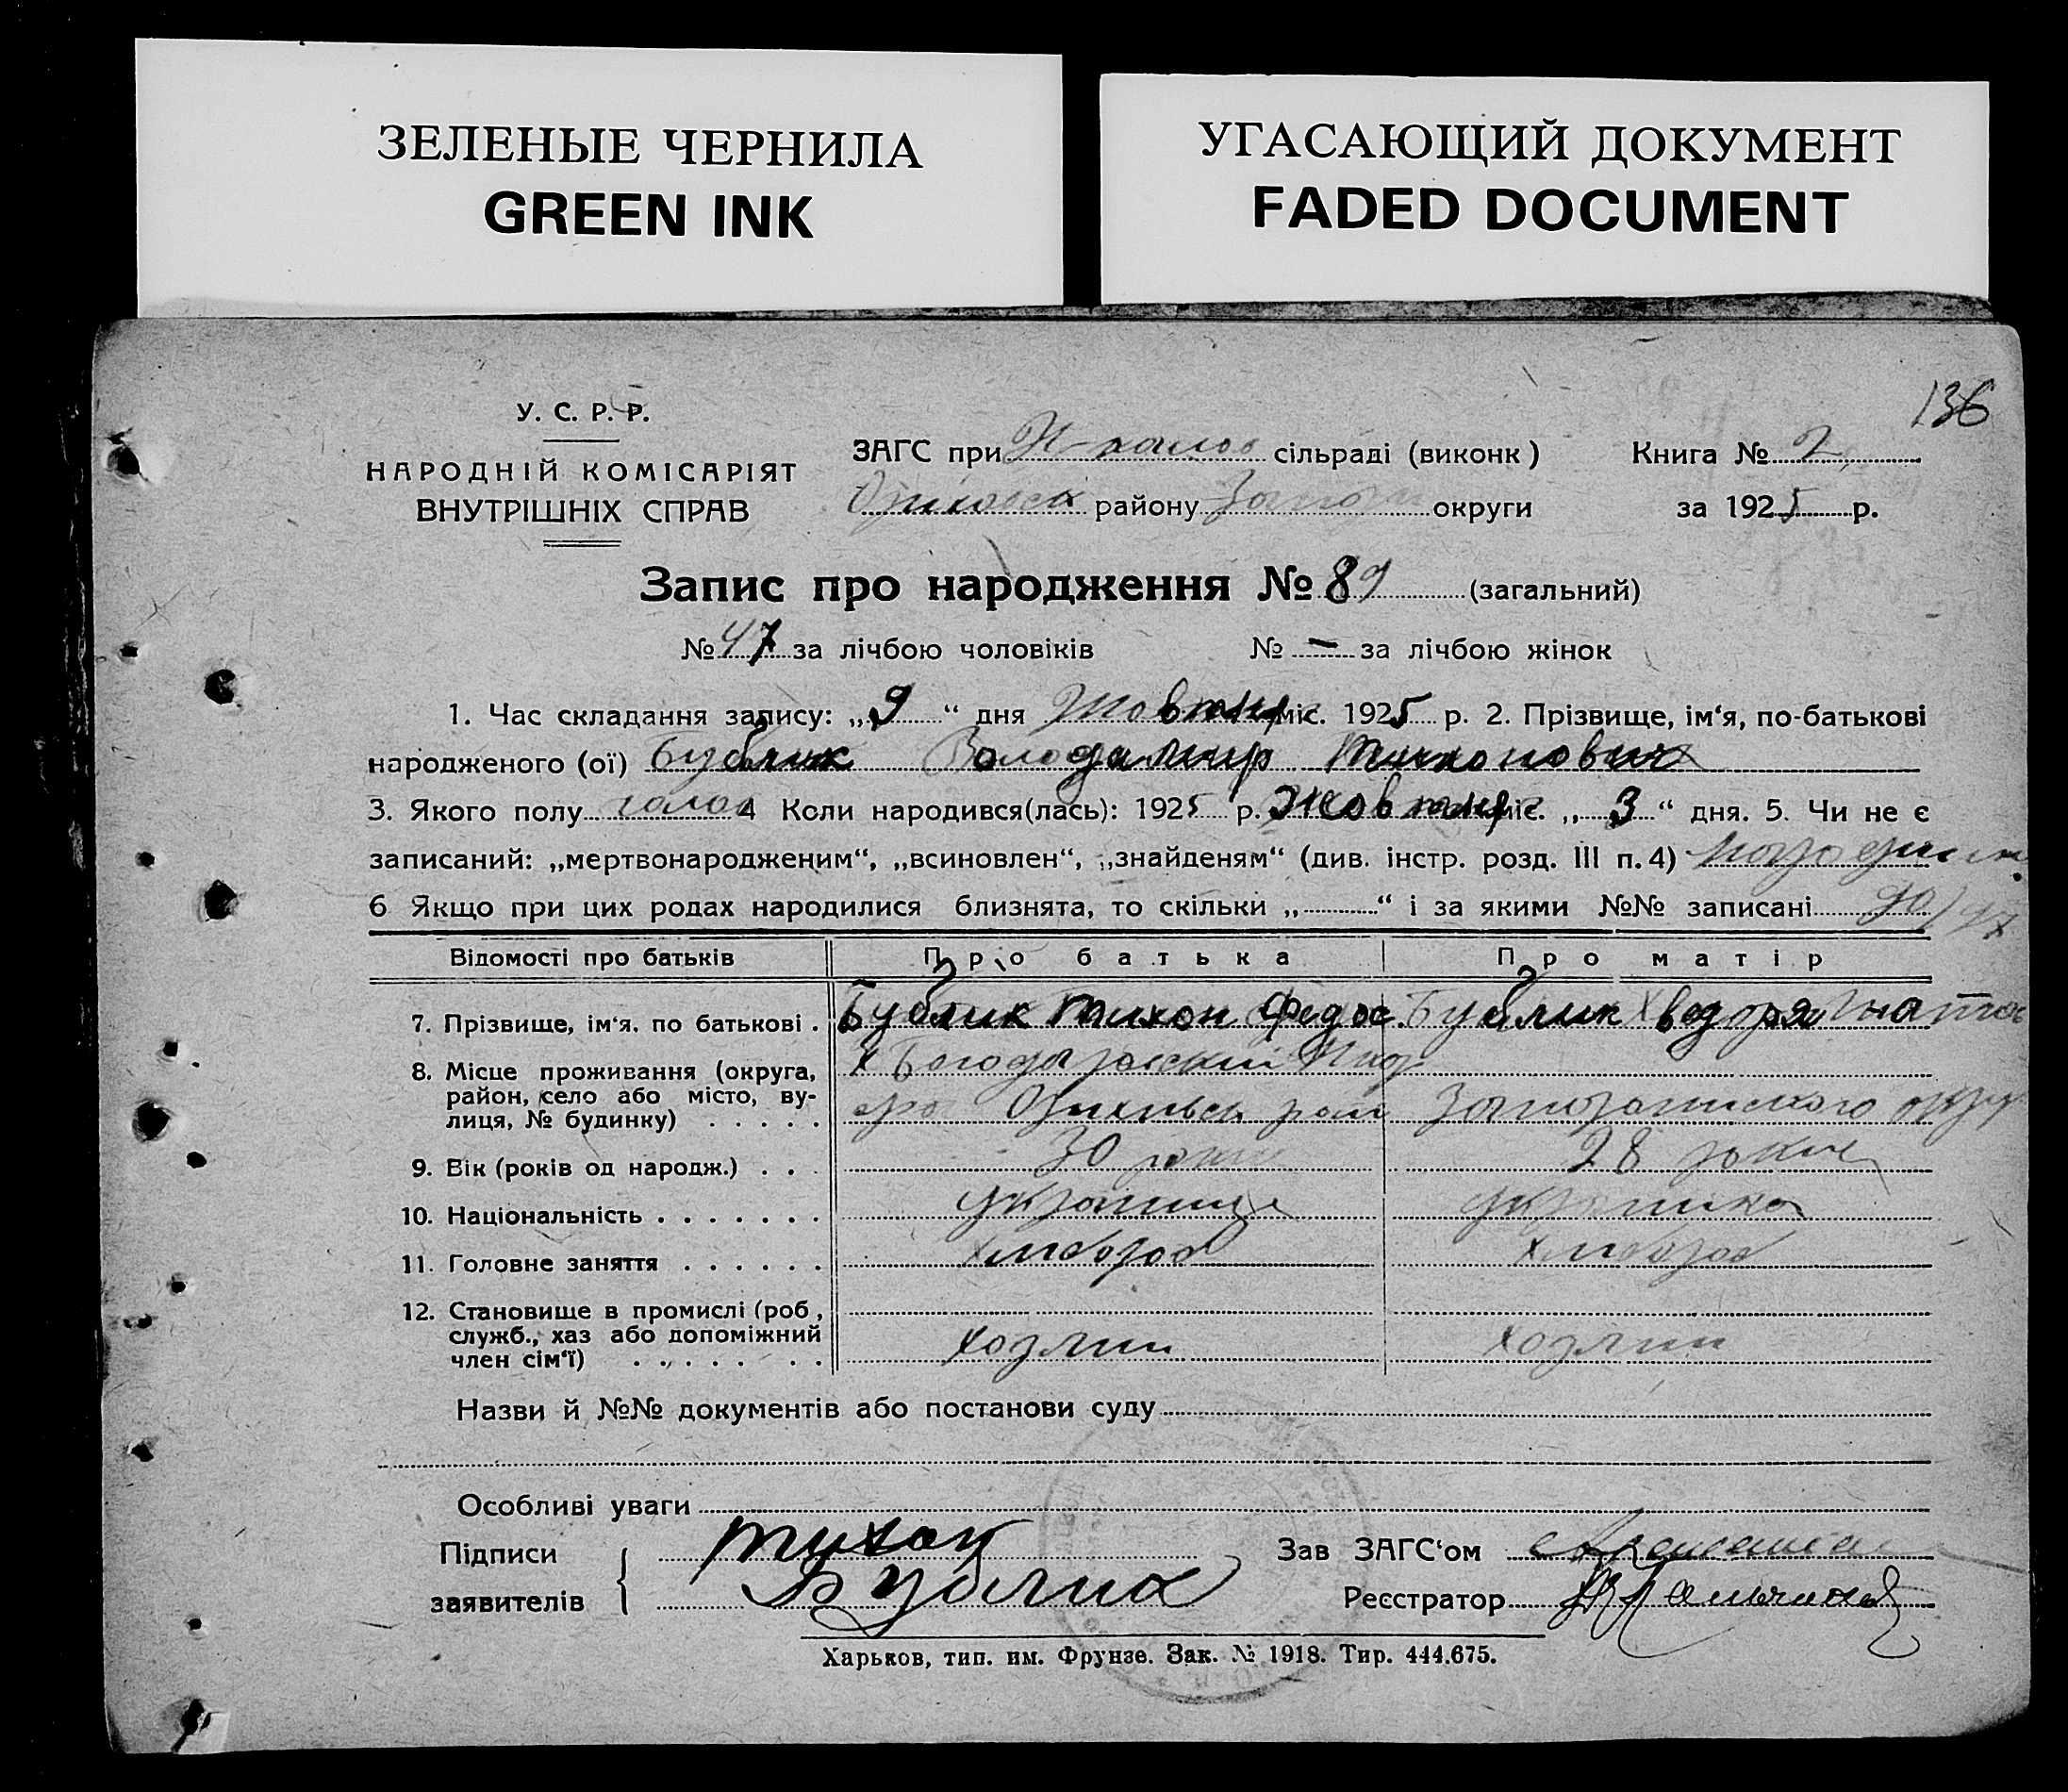 ЗЕЛЕНЫЕ ЧЕРНИЛА
GREEN INK
УГАСАЮЩИЙ ДОКУМЕНТ
FADED DOCUMENT
136
У. С. Р. Р.
НАРОДНІЙ КОМІСАРІЯТ
ВНУТРІШНІХ СПРАВ
ЗАГС при сільраді (виконк) Книга № 2
району округи за 1925 р.
Запис про народження № 89 (загальний)
№ 47 за лічбою чоловіків № – за лічбою жінок
1. Час складання запису: „9“ дня Жовтня міс. 1925 р. 2. Прізвище, ім‘я, по-батькові
народженого (ої) Бублик Володамир Тихонович
3. Якого полу 4 Коли народився(лась): 1925 р. Жовтня міс. „3“ дня. 5. Чи не є
записаний: „мертвонародженим“, „всиновлен“, „знайденям“ (див. інстр. розд. III п. 4)
6 Якщо при цих родах народилися близнята, то скільки „ “ і за якими №№ записані
Відомості про батьків Про батька Про матір
7. Прізвище, ім‘я. по батькові . Бублик Тихон Федос. Бублик Хведоря Гнатов
8. Місце проживання (округа,
район, село або місто, ву-
лиця, № будинку) . . . . .
9. Вік (років од народж.) . . . 30 28
10. Національність . . . . . . . українец українка
11. Головне заняття . . . . . . хлібороб хлібороб
12. Становище в промислі (роб,
служб., хаз або допоміжний
член сім‘ї) . . . . . . . . хозяин хозяин
Назви й №№ документів або постанови суду
Особливі уваги
Підписи Тихон Зав ЗАГС‘ом
заявителів Бублик Реєстратор
Харьков, тип. им. Фрунзе. Зак. № 1918. Тир. 444.675.